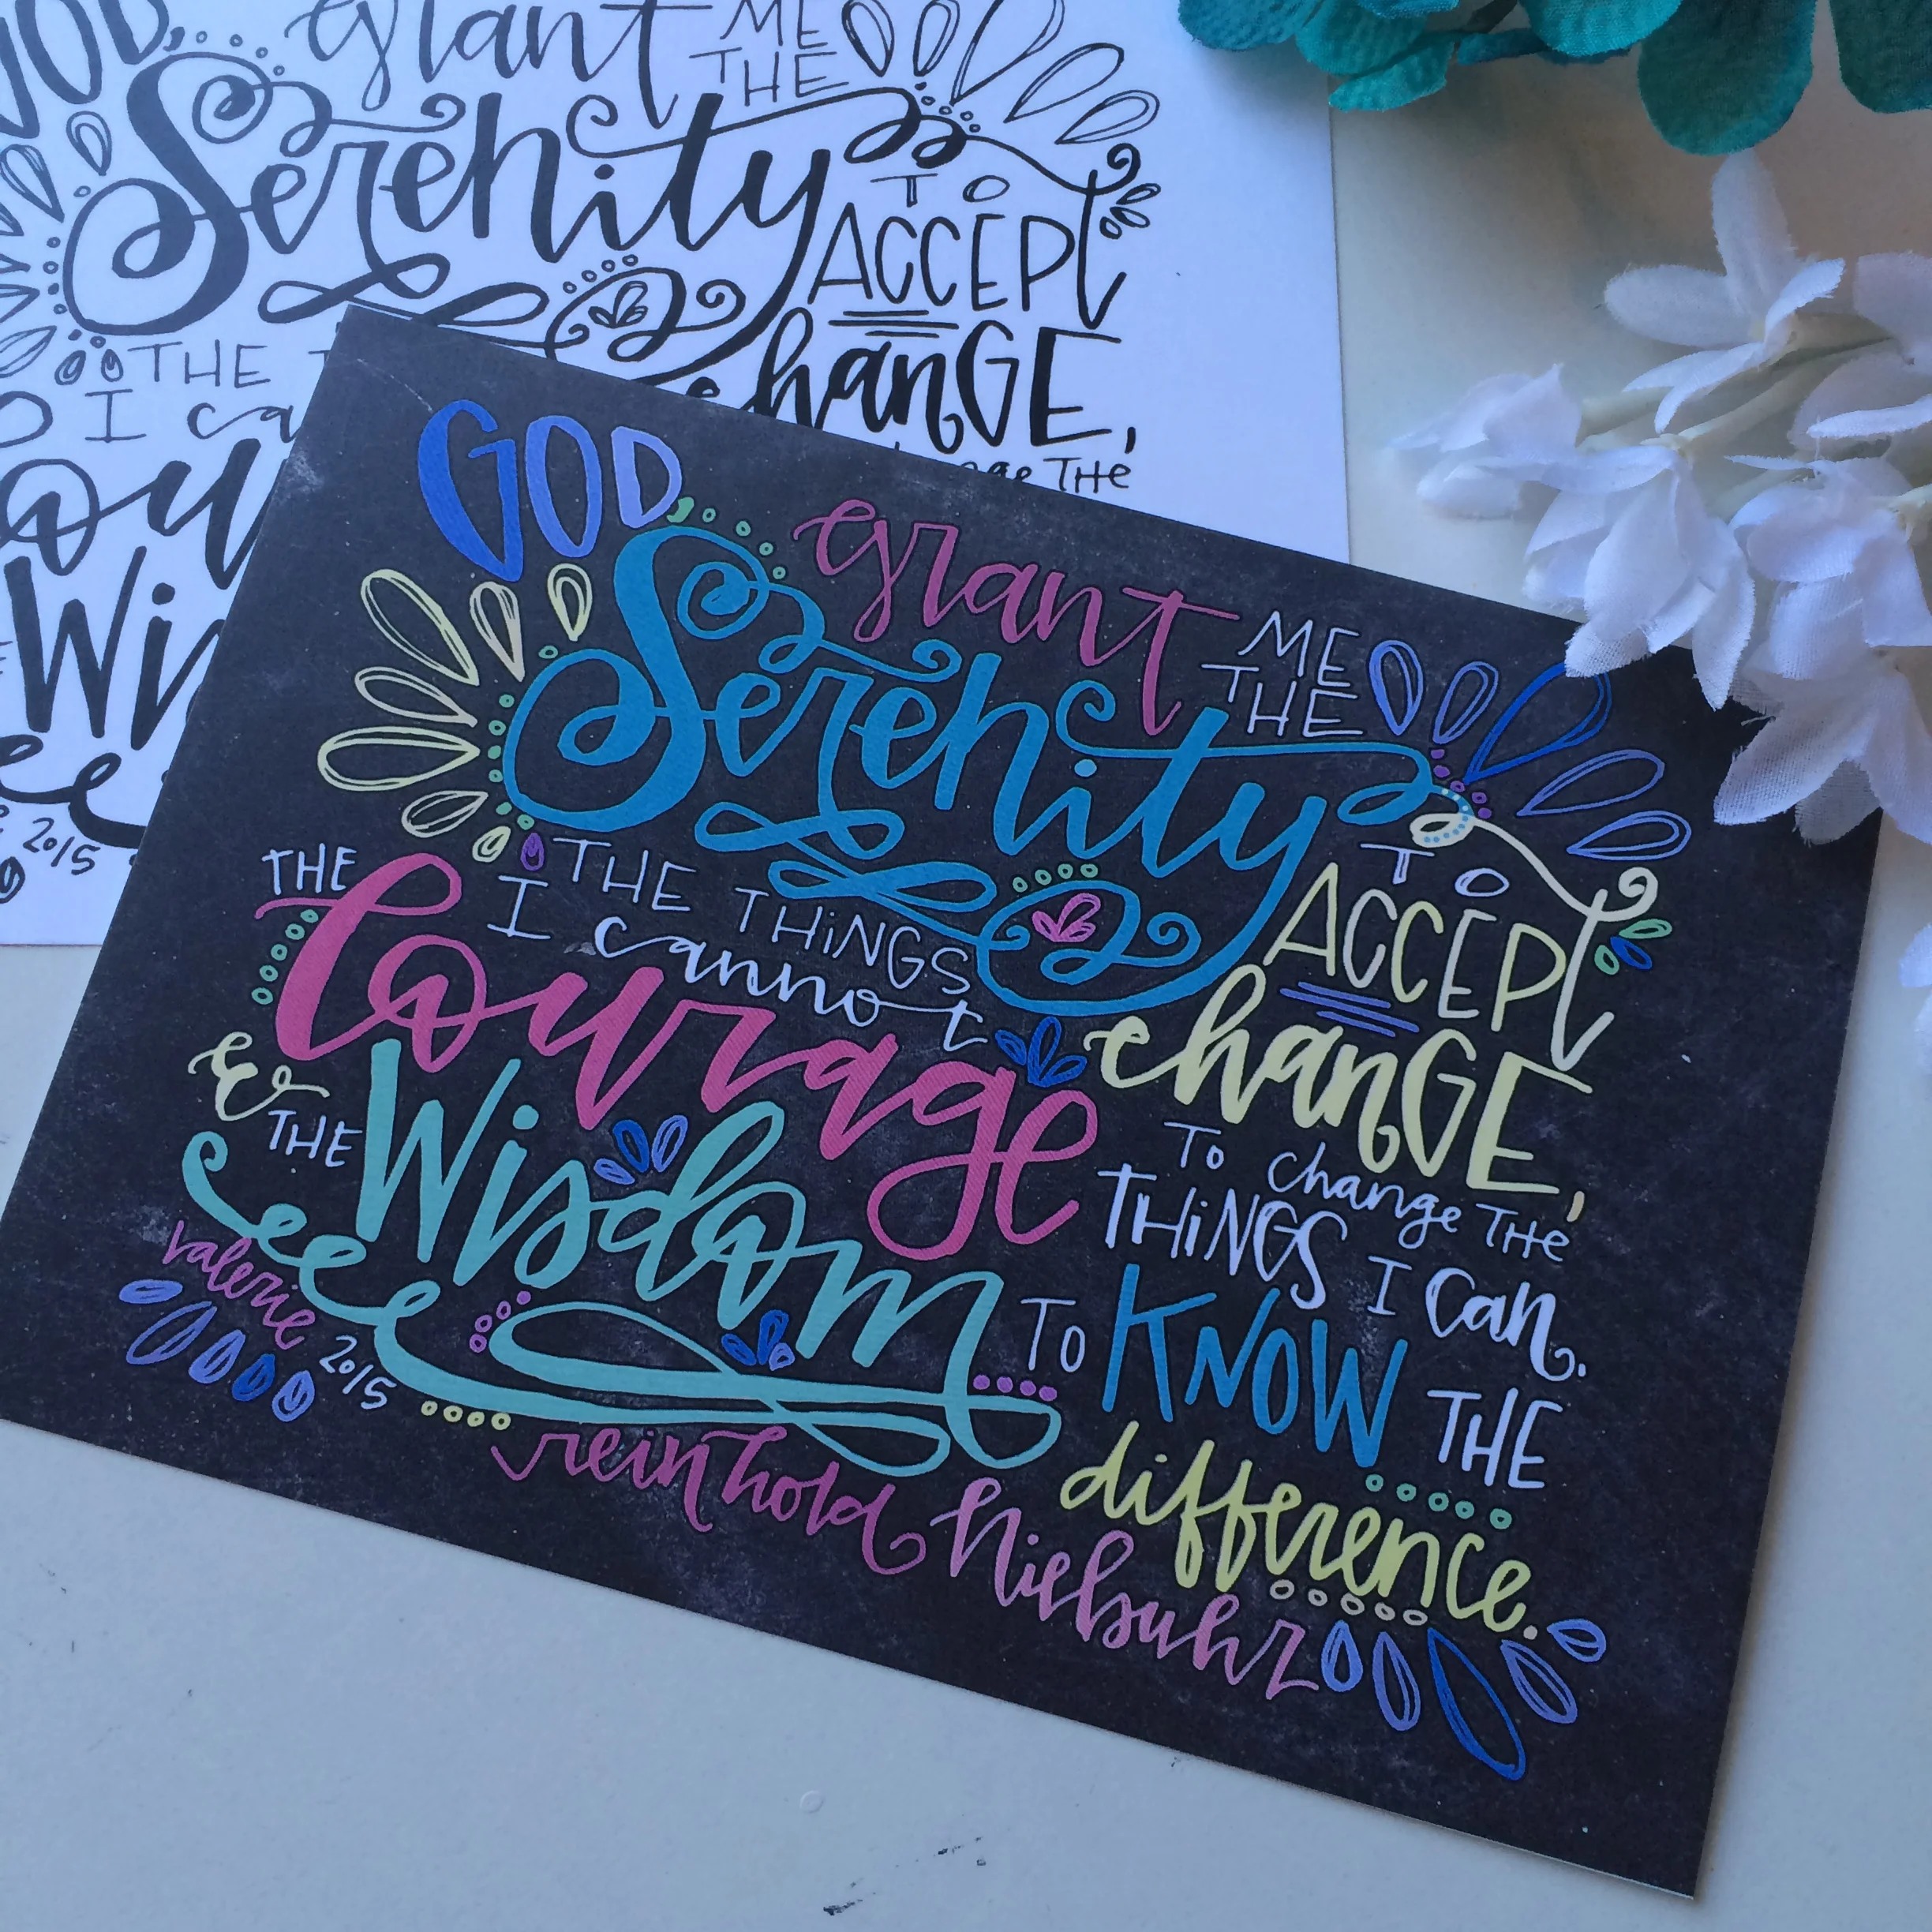 GOD, grant ME
THE
Serenity
TO
ACCEPT
THE
change,
I ca
change THE
Wi
2015
GOD, grant ME
THE
Serenity TO
ACCEPT
THE THINGS
I cannot
change,
THE
Courage
To change THE
THINGS I can.
& THE
Wisdom TO
KNOW THE
difference.
valerie 2015
reinhold Niebuhr